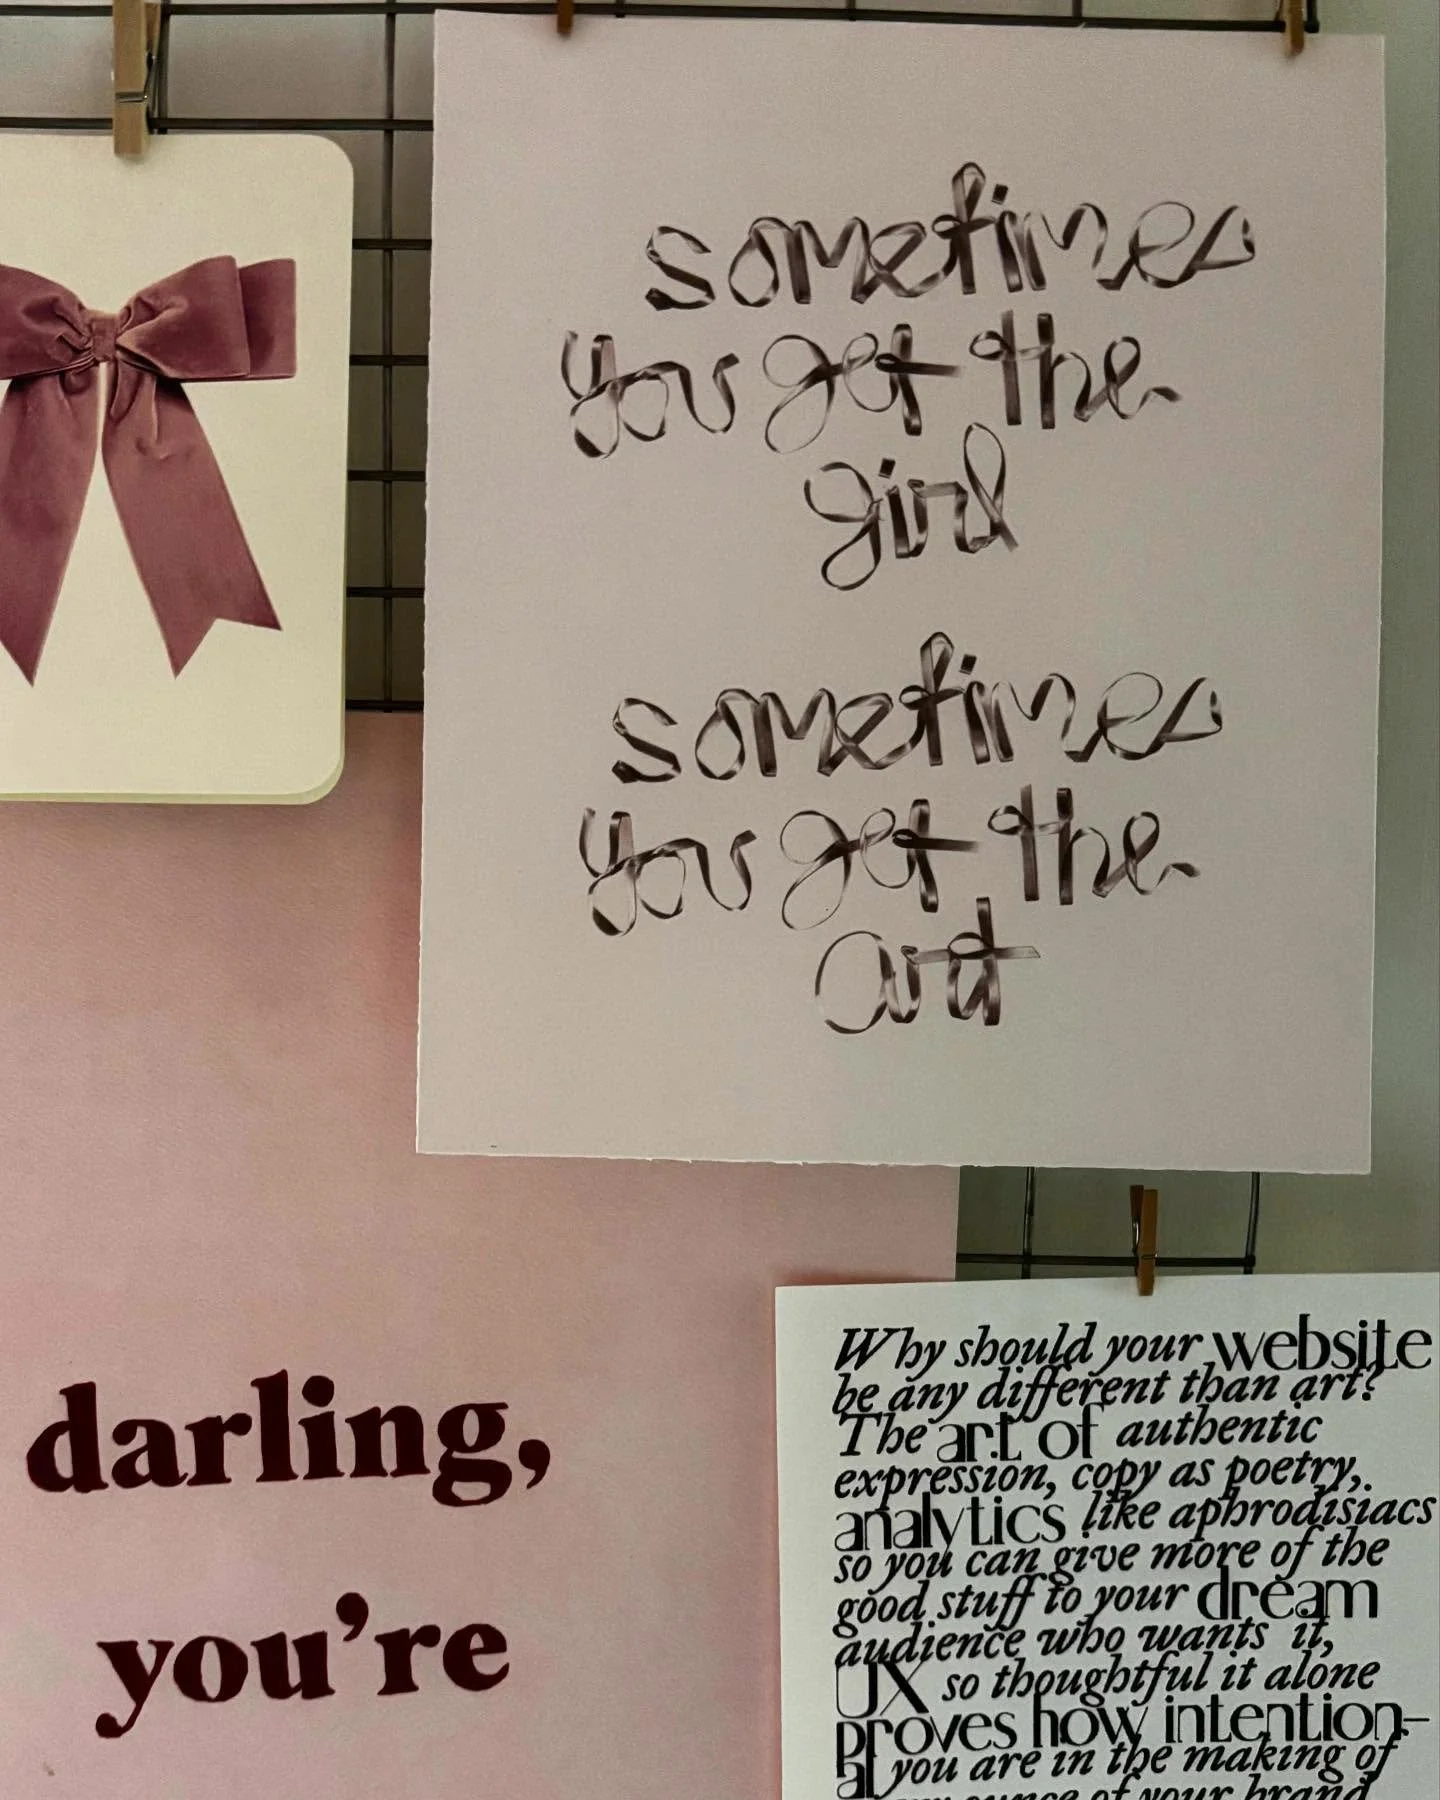 sometimes
you get the
girl
sometimes
you get the
art
darling,
you're
Why should your website
be any different than art?
The art of authentic
expression, copy as poetry,
analytics like aphrodisiacs
so you can give more of the
good stuff to your dream
audience who wants it,
UX so thoughtful it alone
proves how intention-
al you are in the making of
ounce of your brand